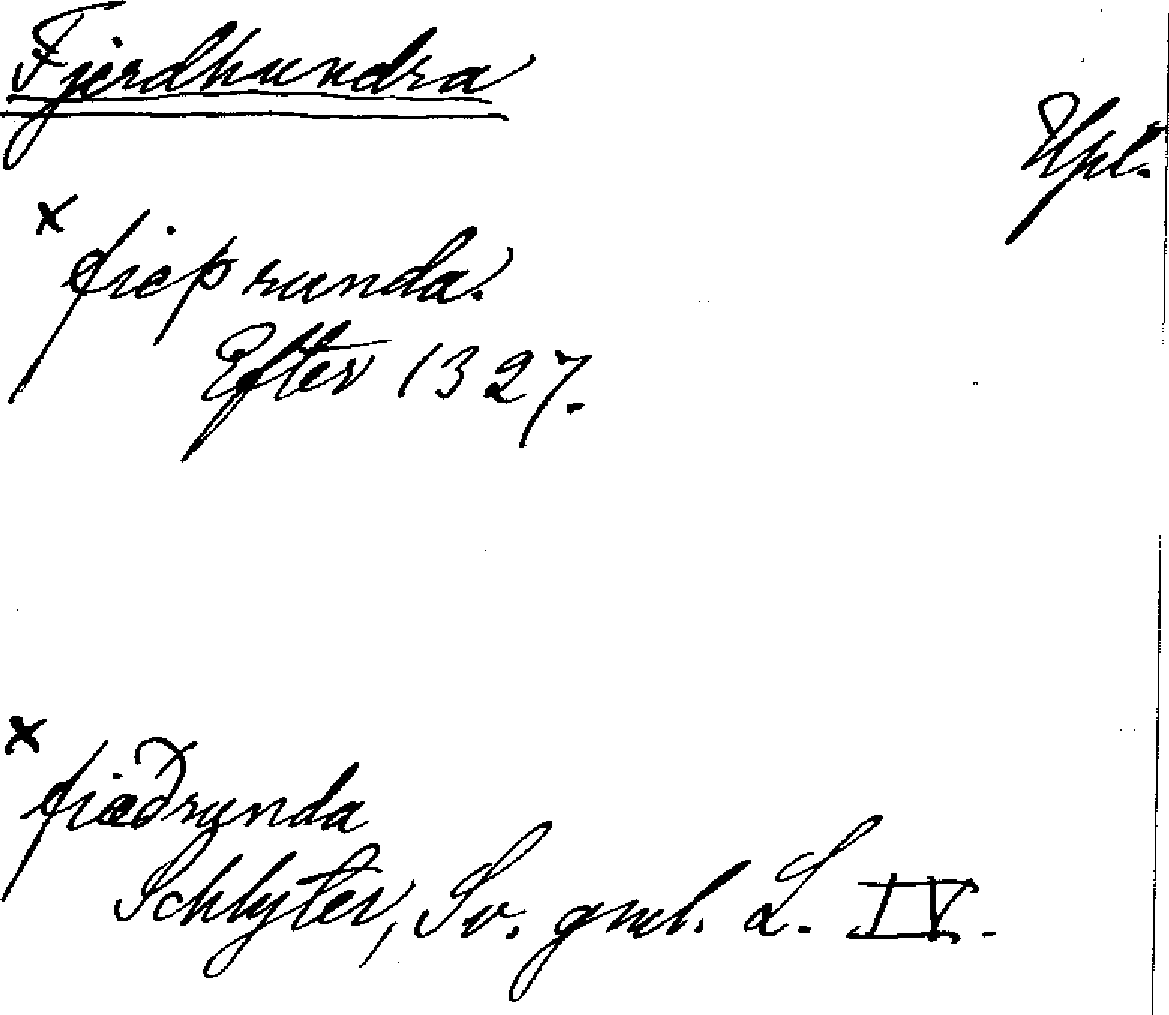 Fjerdhundra
Upl.
x
fieþrunda.
Efter 1327.
x
fiæðrunda
Schlyter, Sv. gml. L. IV.